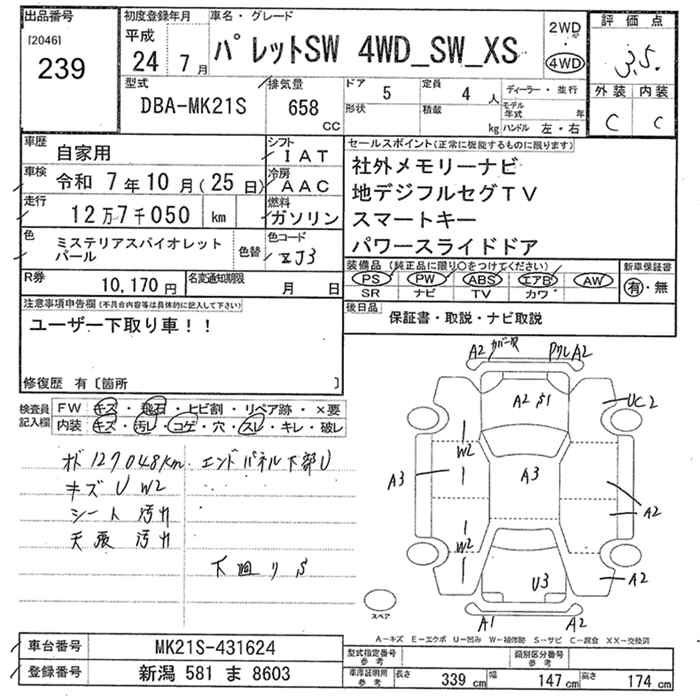 出品番号
[2046]
239
初度登録年月
平成
24 7月
車名・グレード
パレットSW 4WD_SW_XS
2WD
・
4WD
評価点
3.5
外装 内装
C C
型式
DBA-MK21S
排気量
658
CC
ドア
5
定員
4
人
形状
積載
kg
ディーラー・並行
モデル
年式 年
ハンドル 左・右
車歴
自家用
シフト
IAT
車検
令和 7年10月(25日)
冷房
AAC
走行
12万7千050 km
燃料
ガソリン
色
ミステリアスバイオレット
パール
色替
色コード
ZJ3
R券
10,170円
名変通知期限
月 日
セールスポイント(正常に機能するものに限ります)
社外メモリーナビ
地デジフルセグTV
スマートキー
パワースライドドア
装備品(純正品に限り○をつけてください)
PS PW ABS エアB AW
SR ナビ TV カワ
新車保証書
有・無
後日品
保証書・取説・ナビ取説
注意事項申告欄(不具合内容等は具体的に記入して下さい)
ユーザー下取り車!!
修復歴 有〔箇所 〕
検査員
記入欄
FW キズ・飛石・ヒビ割・リペア跡・×要
内装 キズ・汚レ・コゲ・穴・スレ・キレ・破レ
オド 127048km エンドパネル下部U
キズ U W2
シート 汚れ
天張 汚れ
下廻り S
A2 カバー欠 PクレA2
A2 S1
UC2
W2
A3
A3
A2
W2
U3
A2
A1 A2
スペア
A-キズ E-エクボ U-凹み W-補修跡 S-サビ C-腐食 XX-交換済
車台番号
MK21S-431624
登録番号
新潟 581 ま 8603
型式指定番号
参考
類別区分番号
参考
車庫証明用
参考
長さ 339 cm 幅 147 cm 高さ 174 cm